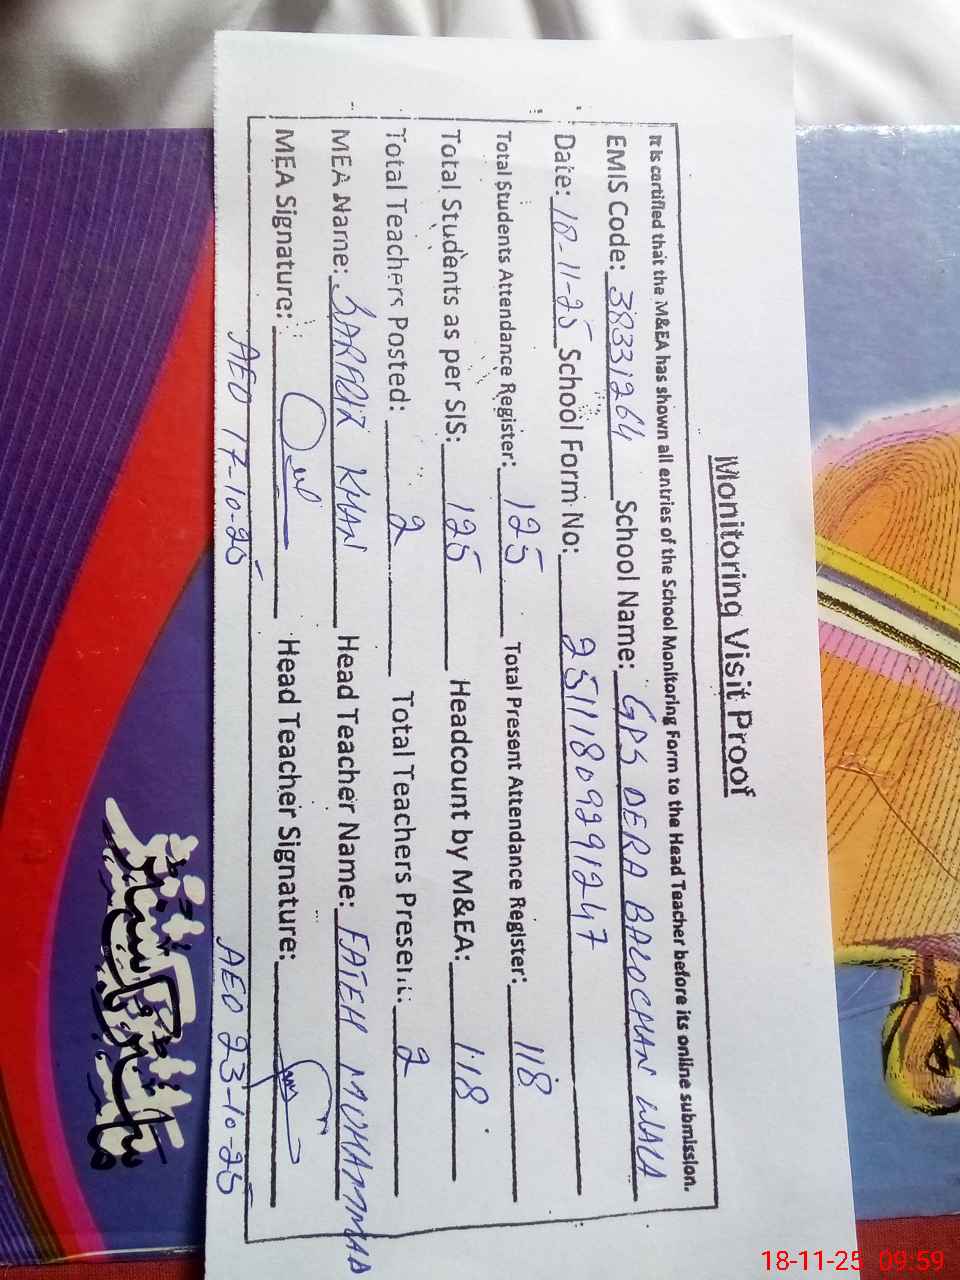 Monitoring Visit Proof
It is certified that the M&EA has shown all entries of the School Monitoring Form to the Head Teacher before its online submission.
EMIS Code: 38331264 School Name: GPS DERA BALOCHAN WALA
Date: 18-11-25 School Form No: 25111809291247
Total Students Attendance Register: 125 Total Present Attendance Register: 118
Total Students as per SIS: 125 Headcount by M&EA: 118
Total Teachers Posted: 2 Total Teachers Present: 2
MEA Name: KHAN Head Teacher Name: FATEH MUHAMMAD
MEA Signature: Head Teacher Signature:
AEO 17-10-25 AEO 23-10-25
18-11-25 09:59